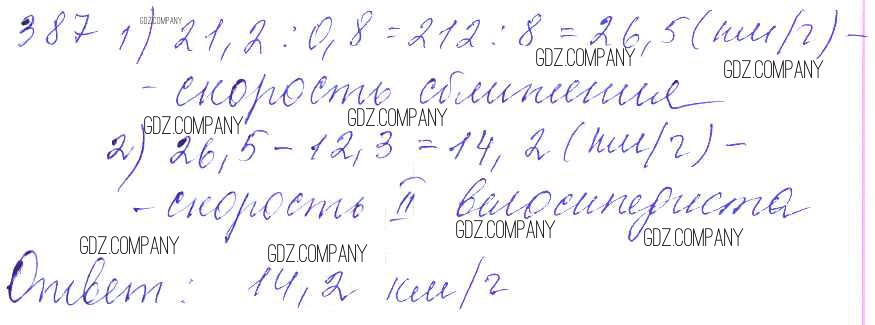 387 1) 21,2 : 0,8 = 212 : 8 = 26,5 (км/ч) -
GDZ.COMPANY
GDZ.COMPANY
GDZ.COMPANY
- скорость сближения
GDZ.COMPANY
GDZ.COMPANY
2) 26,5 - 12,3 = 14,2 (км/ч) -
- скорость II велосипедиста
GDZ.COMPANY
GDZ.COMPANY
GDZ.COMPANY
GDZ.COMPANY
Ответ: 14,2 км/ч